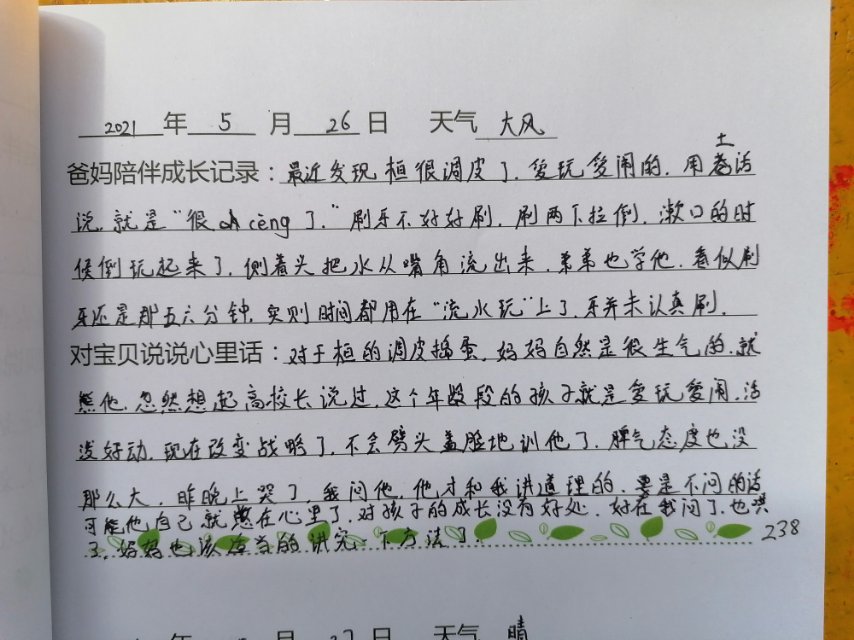 2021年 5 月 26 日 天气 大风
土
爸妈陪伴成长记录：最近发现桓很调皮了.爱玩爱闹的.用话
说.就是“很 cèng了.”刷牙不好好刷.刷两下拉倒.漱口的时
候倒玩起来了.侧着头把水从嘴角流出来.弟弟也学他.看似刷
牙还是那五六分钟.实则时间都用在“流水玩”上了.牙并未认真刷.
对宝贝说说心里话：对于桓的调皮捣蛋.妈妈自然是很生气的.就
他.忽然想起高校长说过.这个年龄段的孩子就是爱玩爱闹.活
泼好动.现在改变战略了.不会劈头盖脸地训他了.脾气态度也没
那么大.昨晚上哭了.我问他.他才和我讲道理的.要是不问的话
可能他自己就憋在心里了.对孩子的成长没有好处.好在我问了.也哄
了.妈妈也该适当的讲究一下方法了.
238
年 月 27 日 天气 晴